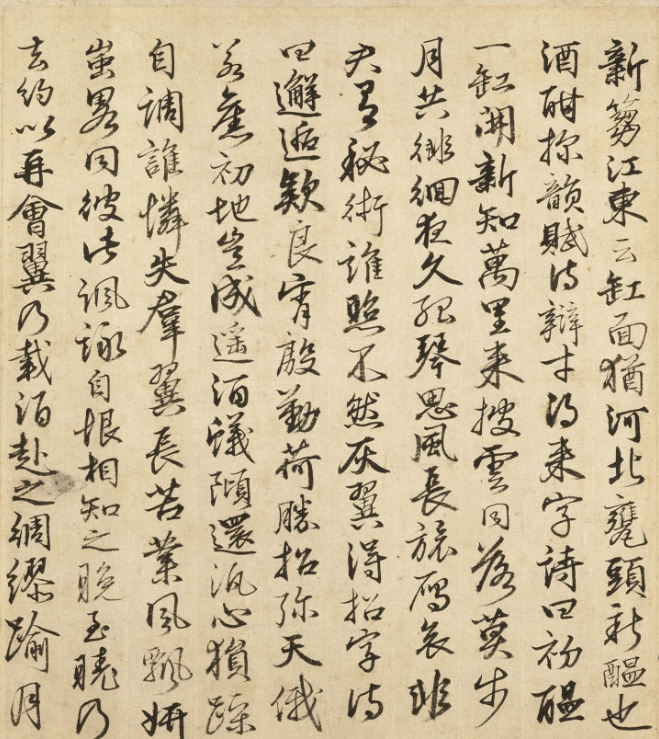 新蒭江東云缸面猶河北甕頭新醞也
酒酣探韻賦詩辯才得來字詩曰初醞
一缸開新知萬里來披雲同落莫步
月共徘徊夜久孤琴思風長旅雁哀非
君有秘術誰照不然灰翼得招字詩
曰邂逅款良宵殷勤荷勝招弥天俄
若舊初地豈成遥酒蟻傾還泛心猿躁
自調誰憐失羣翼長苦業風飄妍
蚩畧同彼此諷詠自恨相知之晚至曉乃
去約以再會翼乃載酒赴之綢繆踰月